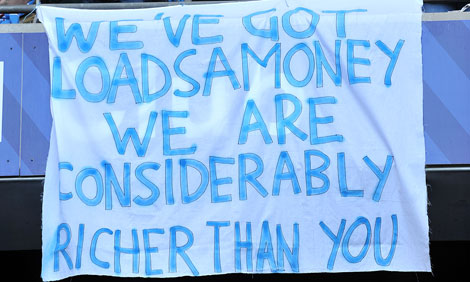 WE'VE GOT
LOADSAMONEY
WE ARE
CONSIDERABLY
RICHER THAN YOU